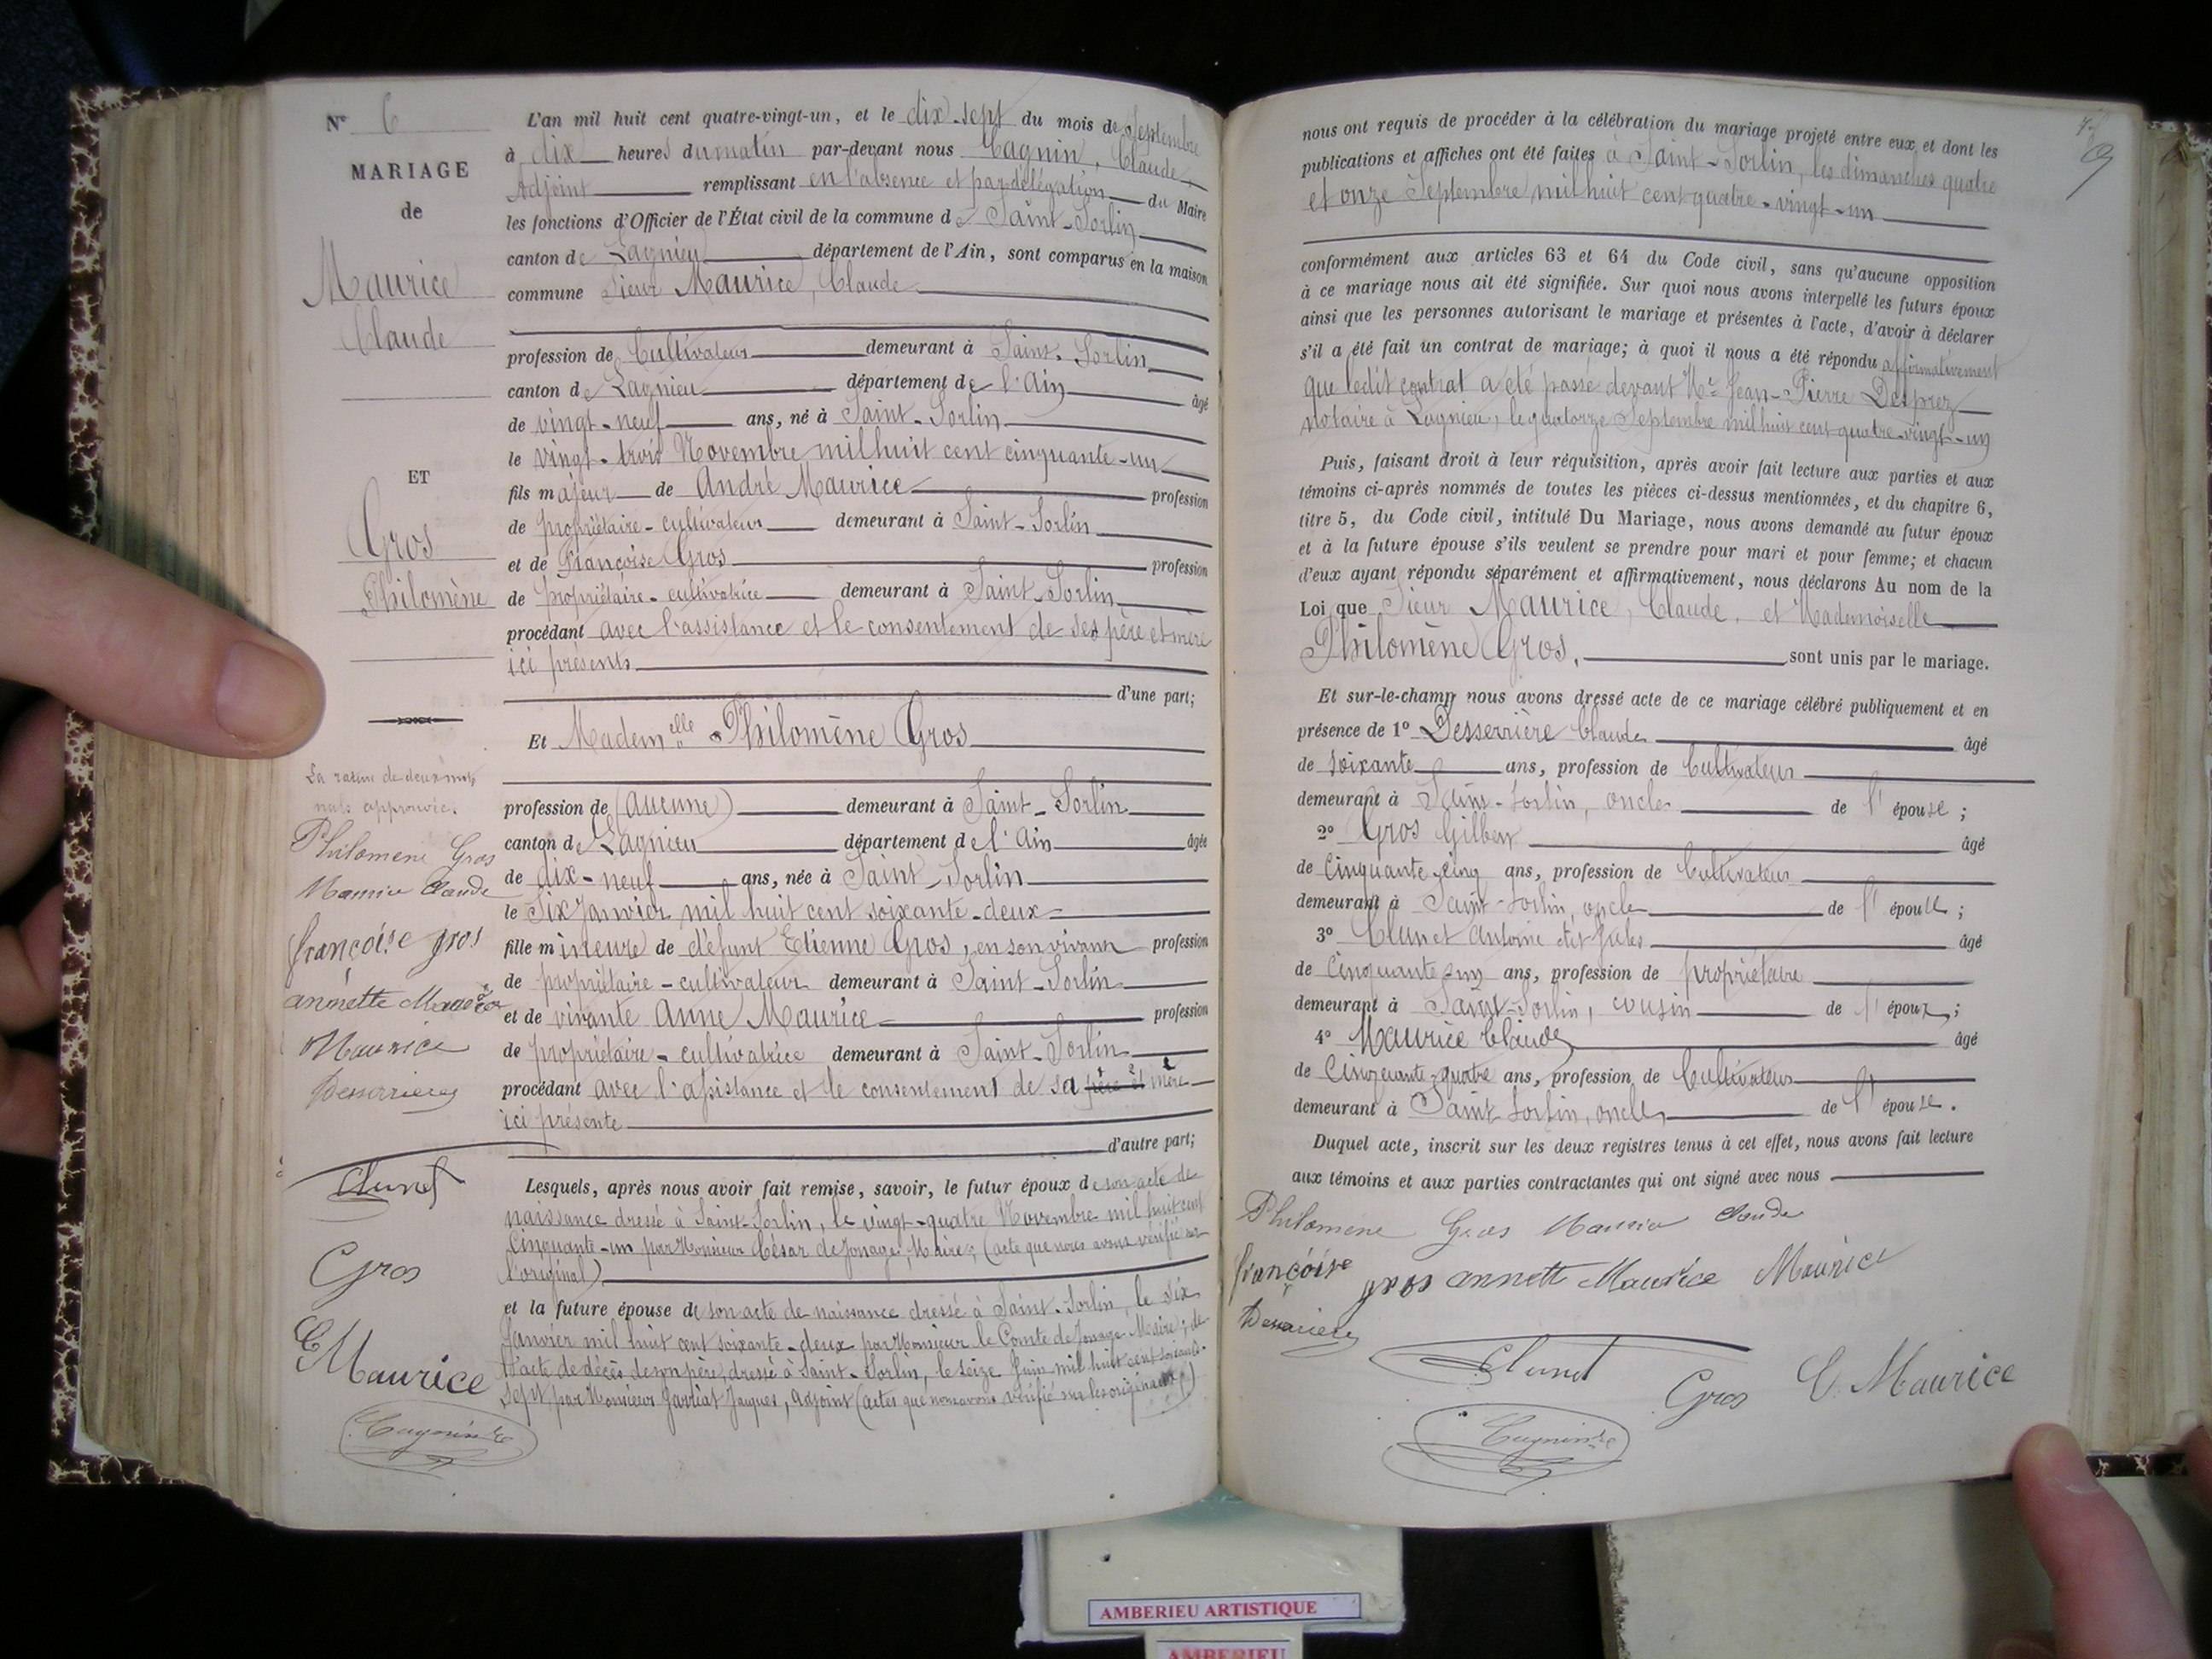 N° 6
MARIAGE
de
Maurice
Claude
ET
Gros
Philomène
La rature de deux mots
nuls approuvée.
Philomene Gros
Maurice Claude
françoise gros
annette Maurice
Maurice
Desserrière
Clunet
Gros
C Maurice
L'an mil huit cent quatre-vingt-un, et le dix-sept du mois de Septembre
à dix heures du matin par-devant nous Cagnin, Claude,
Adjoint remplissant en l'absence et par délégation du Maire
les fonctions d'Officier de l'État civil de la commune de Saint-Sorlin
canton de Lagnieu département de l'Ain, sont comparus en la maison
commune Sieur Maurice, Claude
profession de Cultivateur demeurant à Saint-Sorlin
canton de Lagnieu département de l'Ain âgé
de vingt-neuf ans, né à Saint-Sorlin
le vingt-trois Novembre mil huit cent cinquante-un
fils majeur de André Maurice profession
de propriétaire-cultivateur demeurant à Saint-Sorlin
et de Françoise Gros profession
de propriétaire-cultivatrice demeurant à Saint-Sorlin
procédant avec l'assistance et le consentement de ses père et mère
ici présents
d'une part;
Et Madem elle Philomène Gros
profession de (aucune) demeurant à Saint-Sorlin
canton de Lagnieu département de l'Ain âgée
de dix-neuf ans, née à Saint-Sorlin
le Six Janvier mil huit cent soixante-deux
fille mineure de défunt Etienne Gros, en son vivant profession
de propriétaire-cultivateur demeurant à Saint-Sorlin
et de vivante Anne Maurice profession
de propriétaire-cultivatrice demeurant à Saint-Sorlin
procédant avec l'assistance et le consentement de sa père et mère
ici présente
d'autre part;
Lesquels, après nous avoir fait remise, savoir, le futur époux de son acte de
naissance dressé à Saint-Sorlin, le vingt-quatre Novembre mil huit cent
Cinquante-un par Monsieur César de Jonage, Maire; (acte que nous avons vérifié sur
l'original)
et la future épouse de son acte de naissance dressé à Saint-Sorlin, le Six
Janvier mil huit cent soixante-deux par Monsieur le Comte de Jonage Maire; de
l'acte de décès de son père, dressé à Saint-Sorlin, le seize Juin mil huit cent soixante-
sept, par Monsieur Jarriat Jaques, adjoint (actes que nous avons vérifié sur les originaux)
nous ont requis de procéder à la célébration du mariage projeté entre eux, et dont les
publications et affiches ont été faites à Saint-Sorlin, les dimanches quatre
et onze Septembre mil huit cent quatre-vingt-un
conformément aux articles 63 et 64 du Code civil, sans qu'aucune opposition
à ce mariage nous ait été signifiée. Sur quoi nous avons interpellé les futurs époux
ainsi que les personnes autorisant le mariage et présentes à l'acte, d'avoir à déclarer
s'il a été fait un contrat de mariage; à quoi il nous a été répondu affirmativement
que ledit contrat a été passé devant Me Jean-Pierre Desprez
notaire à Lagnieu, le quatorze Septembre mil huit cent quatre-vingt-un
Puis, faisant droit à leur réquisition, après avoir fait lecture aux parties et aux
témoins ci-après nommés de toutes les pièces ci-dessus mentionnées, et du chapitre 6,
titre 5, du Code civil, intitulé Du Mariage, nous avons demandé au futur époux
et à la future épouse s'ils veulent se prendre pour mari et pour femme; et chacun
d'eux ayant répondu séparément et affirmativement, nous déclarons Au nom de la
Loi que Sieur Maurice, Claude, et Mademoiselle
Philomène Gros, sont unis par le mariage.
Et sur-le-champ nous avons dressé acte de ce mariage célébré publiquement et en
présence de 1° Desserrière Claude âgé
de soixante ans, profession de Cultivateur
demeurant à Saint-Sorlin, oncle de l'épouse;
2° Gros Gilbert âgé
de Cinquante-cinq ans, profession de Cultivateur
demeurant à Saint-Sorlin, oncle de l'épouse;
3° Clunet Antoine dit Jules âgé
de Cinquante-un ans, profession de propriétaire
demeurant à Saint-Sorlin, cousin de l'époux;
4° Maurice Claude âgé
de Cinquante-quatre ans, profession de Cultivateur
demeurant à Saint Sorlin, oncle de l'épouse.
Duquel acte, inscrit sur les deux registres tenus à cet effet, nous avons fait lecture
aux témoins et aux parties contractantes qui ont signé avec nous
Philomene Gros Maurice Claude
françoise gros annette Maurice Maurice
Desserrière
Clunet
Gros C. Maurice
AMBERIEU ARTISTIQUE
AMBERIEU